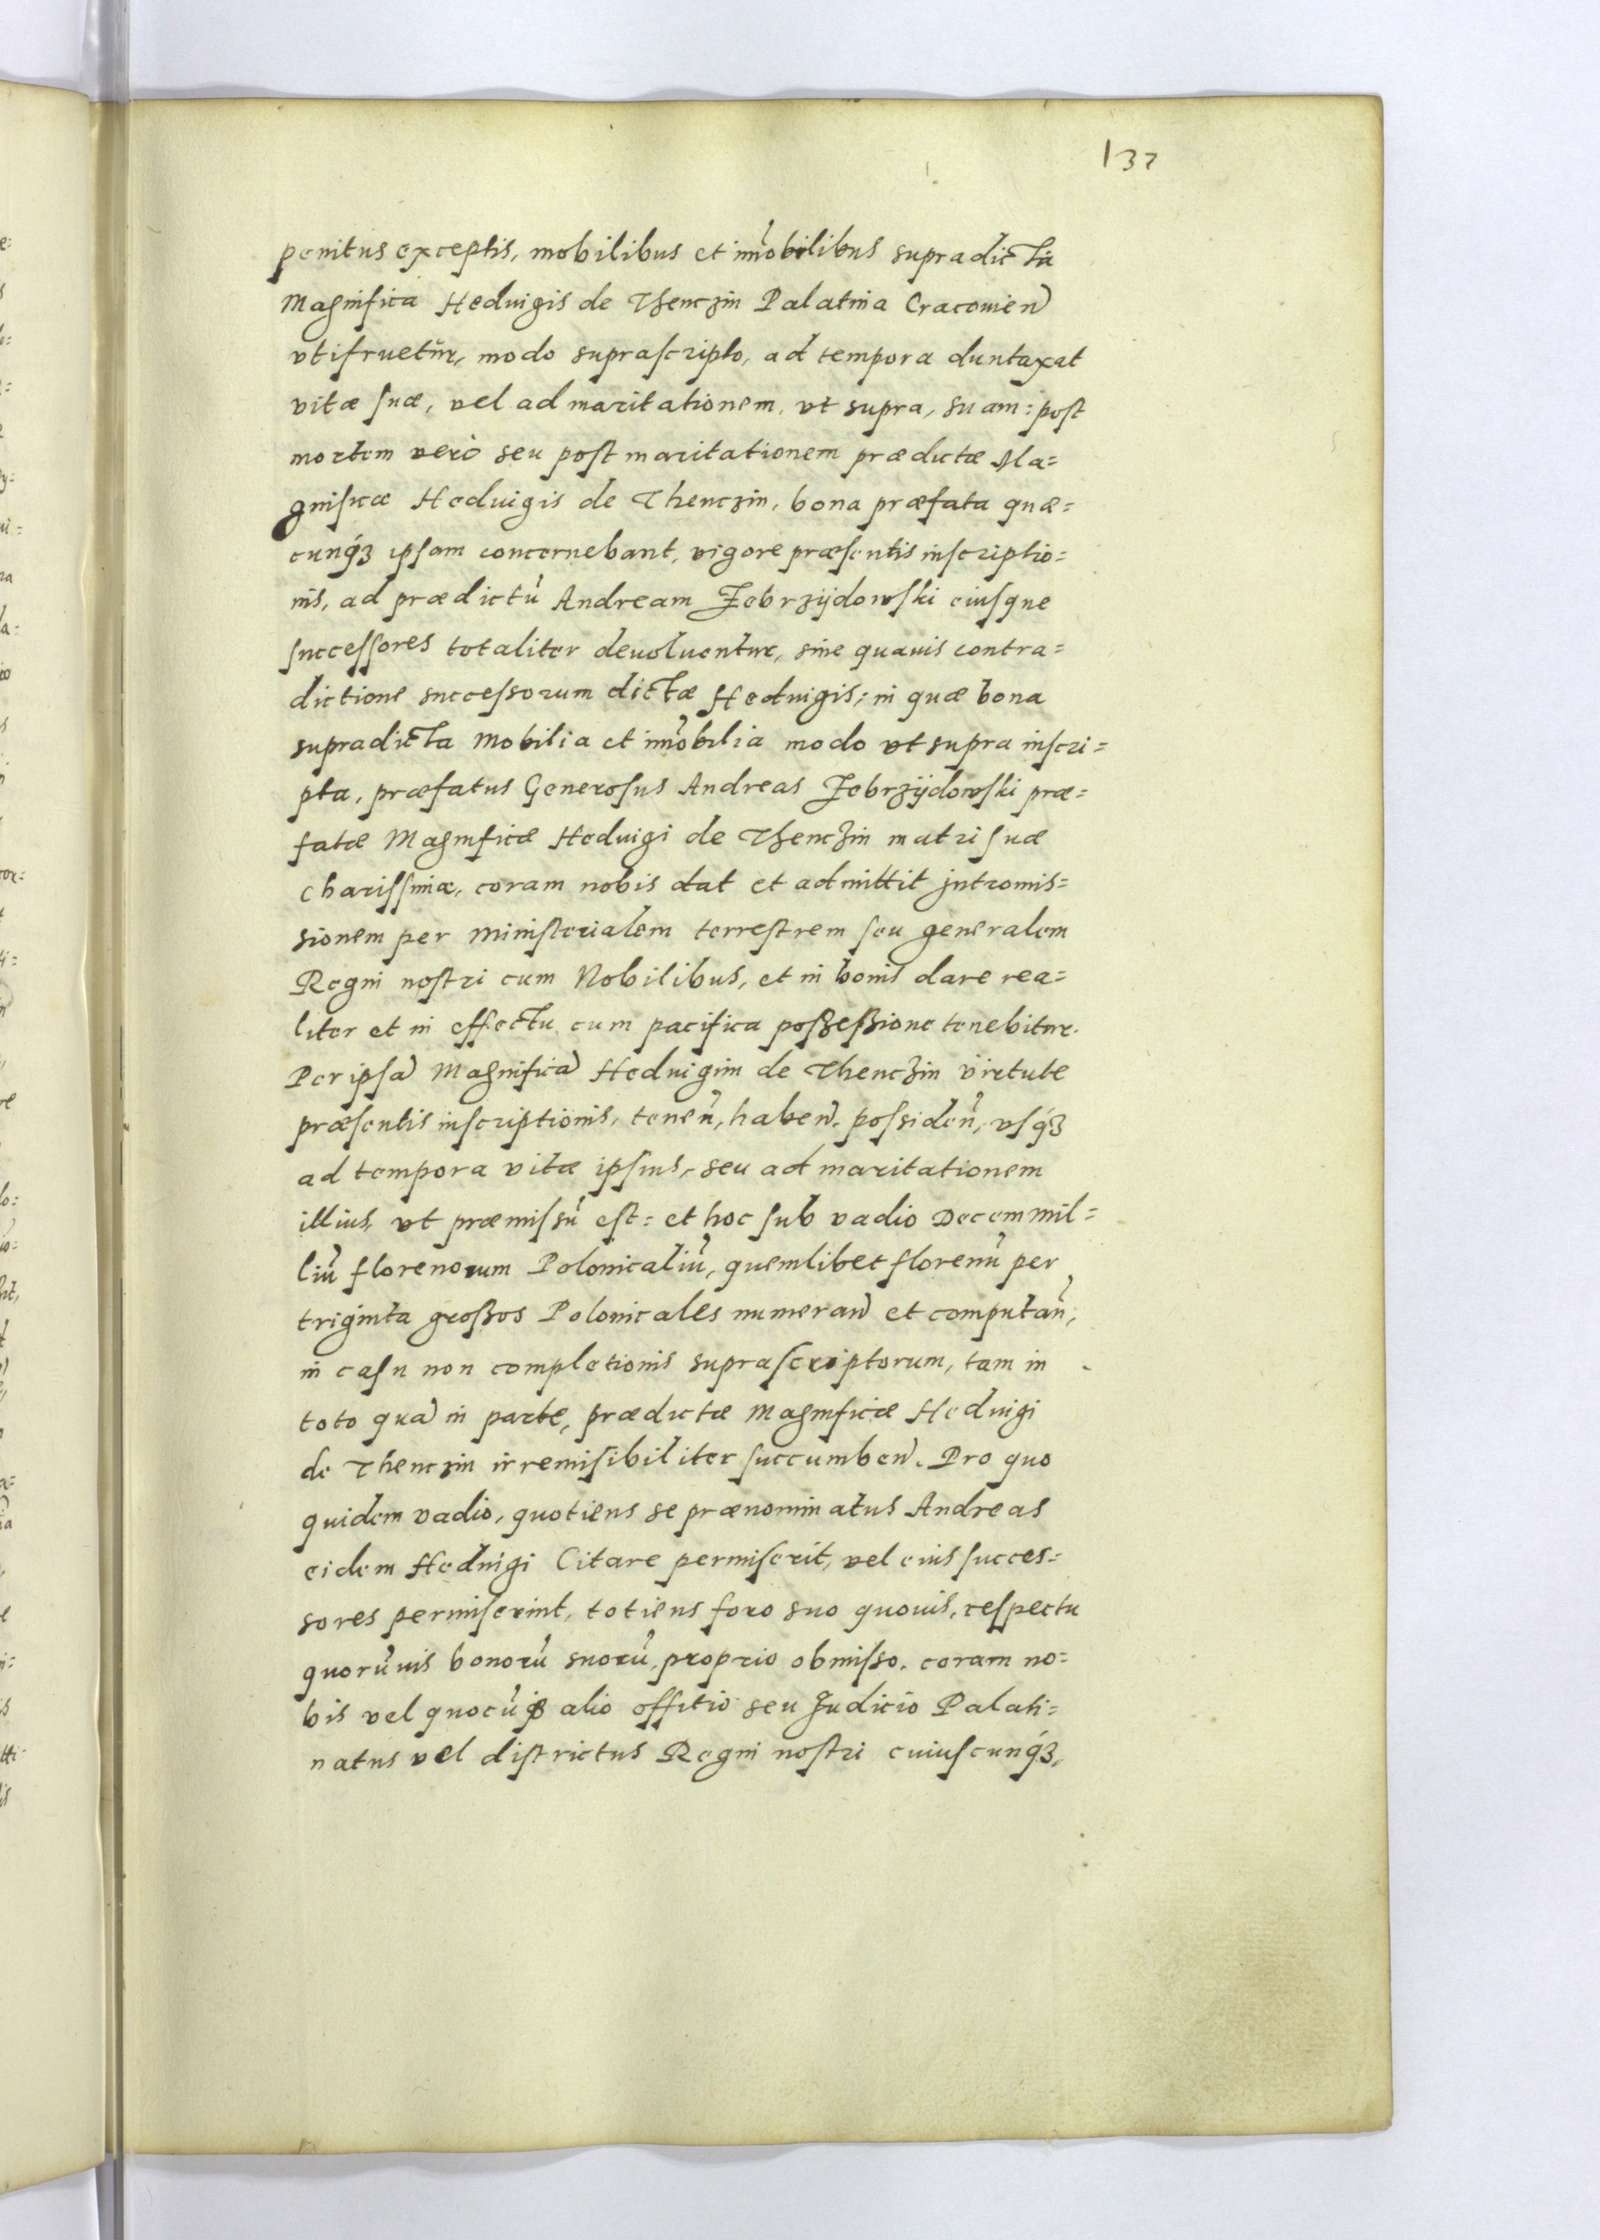 137
penitus exceptis, mobilibus et im̃obilibus supradicta
Magnifica Heduigis de Thenczin Palatina Cracouień
vtifruetur, modo suprascripto, ad tempora duntaxat
vitæ suæ, vel ad maritationem, vt supra, suam: post
mortem verò seu post maritationem prædictæ Ma=
gnificæ Heduigis de Thenczin, bona præfata quæ=
cunq́ʒ ipsam concernebant, vigore præsentis inscriptio=
nis, ad prædictũ Andream Zebrzijdowski eiusque
successores totaliter deuoluentur, sine quauis contra=
dictione successorum dictæ Heduigis: in quæ bona
supradicta Mobilia et im̃obilia modo vt supra inscri=
pta, præfatus Generosus Andreas Zebrzijdowski præ=
fatæ Magnificæ Heduigi de Thenczin matri suæ
charissimæ, coram nobis dat et admittit jntromis=
sionem per ministerialem terrestrem seu generalem
Regni nostri cum Nobilibus, et in bonis dare rea=
liter et in effectu cum pacifica poßeßione tenebitur.
Per ipsã Magnificã Heduigim de Thenczin virtute
præsentis inscriptionis, teneñ, habeñ, possideñ, vsq́ʒ
ad tempora vitæ ipsius, seu ad maritationem
illius, vt præmissũ est: et hoc sub vadio Decem mil=
liũ florenorum Polonicaliũ, quemlibet florenũ per
triginta großos Polonicales numerañ et computañ,
in casu non completionis suprascriptorum, tam in
toto quã in parte, prædictæ Magnificæ Heduigi
de Thenczin irremisibiliter succumbeñ. Pro quo
quidem vadio, quotiens se prænominatus Andreas
eidem Heduigi Citare permiserit, vel eius succes=
sores permiserint, totiens foro suo quouis, respectu
quorũuis bonorũ suorũ, proprio obmisso, coram no=
bis vel quocũq́ʒ alio offitio seu Judicio Palati=
natus vel districtus Regni nostri cuiuscunq́ʒ,